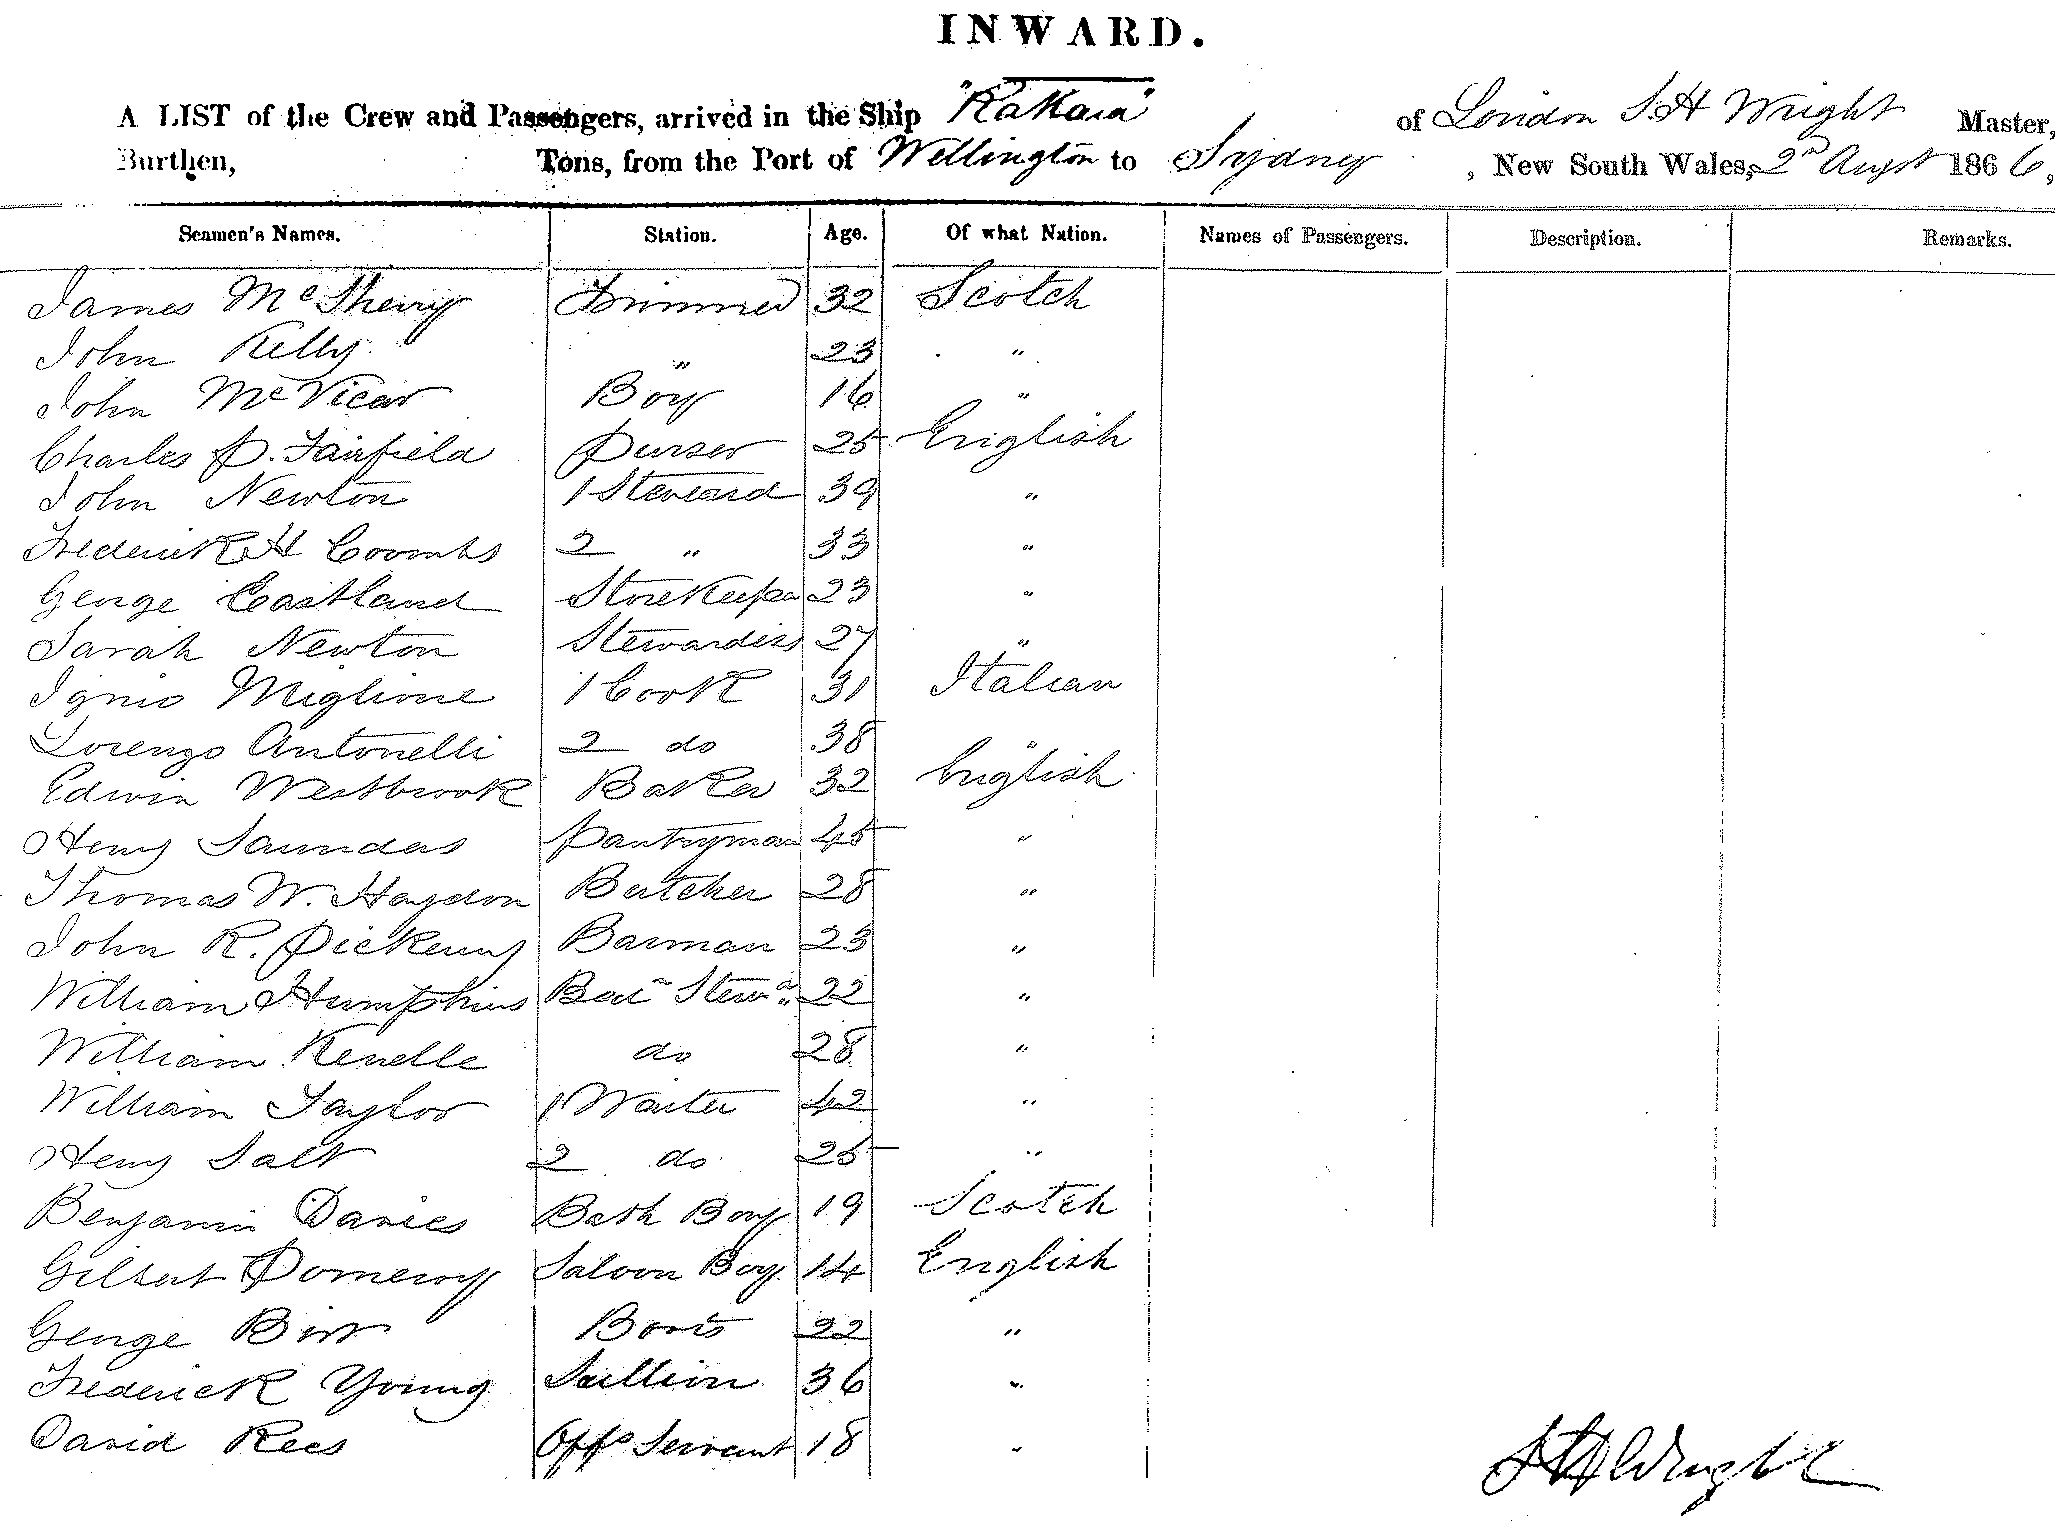 INWARD.
A LIST of the Crew and Passengers, arrived in the Ship "Kakaia" of London Wright Master,
Burthen, Tons, from the Port of Wellington to Sydney, New South Wales, 2nd Augst 1866,
Seamen's Names. Station. Age. Of what Nation. Names of Passengers. Description. Remarks.
James McSherry Trimmer 32 Scotch
John Kelly " 23 "
John McVicar Boy 16 "
Charles P. Fairfield Purser 25 English
John Newton 1 Steward 39 "
Frederick H Coombs 2 " 33 "
George Eastland Storekeeper 23 "
Sarah Newton Stewardess 27 "
Ignio Miglione 1 Cook 31 Italian
Lorenzo Antonelli 2 do 38 "
Edwin Westbrook Baker 32 English
Henry Saunders Pantryman 45 "
Thomas W. Haydon Butcher 28 "
John R. Pickering Barman 23 "
William Humpkins 22 "
William do 28 "
William Taylor 1 Waiter 42 "
Henry Salt 2 do 25 "
Benjamin Davies Bath Boy 19 Scotch
Gilbert Pomeroy Saloon Boy 14 English
George Birt Boots 22 "
Frederick Young Scullion 36 "
David Rees Offs Servant 18 "
Wright